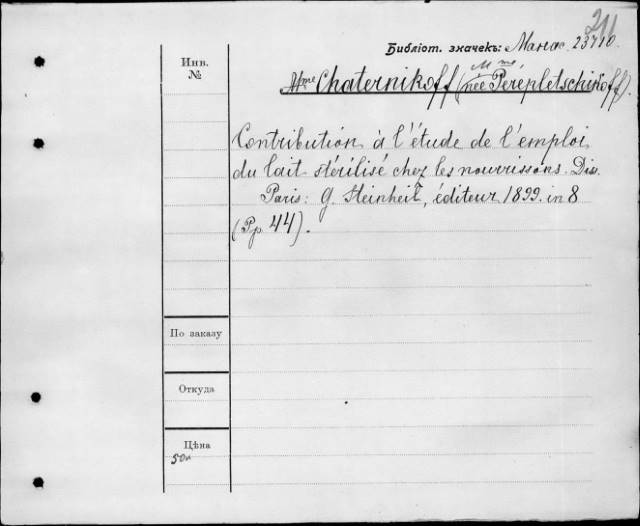 211
Библіот. значекъ: Манас. 23710.
Инв.
№
Mme
Mme Chaternikoff (née Perepletschikoff).
Contribution à l'étude de l'emploi
du lait stérilisé chez les nourrissons. Dis.
Paris: G. Steinheil, éditeur 1899. in 8
(Pp. 44).
По заказу
Откуда
Цѣна
50к